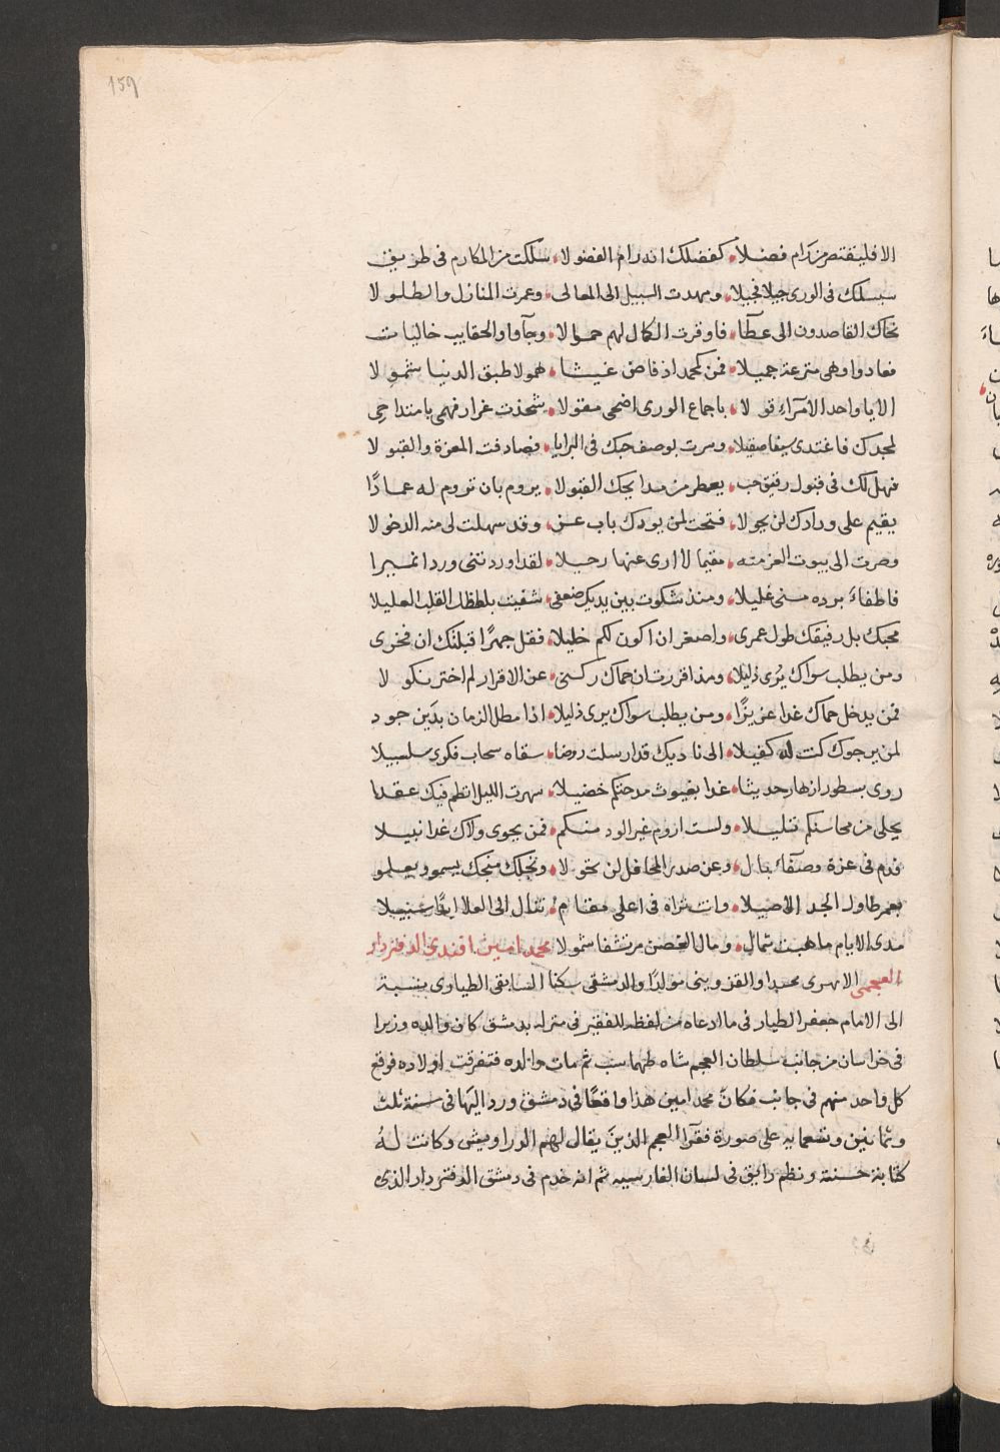 159
الا فليقتص من رام فضلا كفضلك اندرام الفضولا سلكت من المكارم فى طريق
سبيلك فى الورى جيلا فجيلا ومهدت السبيل الى المعالى وعمرت المنازل والطلولا
نحاك القاصدون الى عطآا فاوقرت الكمال لهم حمولا وجآوا والحقايب خاليات
فعادوا وهى مترعة جميلا فمن كمحمد اذ فاض غيثا همولا طبق الدنيا شمولا
الا يا واحد الامرآء قولا باجماع الورى اضحى مقولا شحذت غرار فهمى بامتداحى
لمجدك فاغتدى سيفا صقيلا وسرت بوصف حبك فى البرايا فصادفت المعزة والقبولا
فهل لك فى قبول رقيق حب يعطر من مدايحك القبولا يروم بان تروم له عمادًا
يقيم على ودادك لن يحولا فتحت لمن يودك باب عز وقد سهلت لى منه الدخولا
وصرت الى بيوت العز منه مقيما لا ارى عنها رحيلا لقد اوردتنى وردا نميرا
فاطفاء برده منى غليلا ومنذ شكوت بين يديك ضعفى شفيت بلطفك القلب العليلا
محبك بل رفيقك طول عمرى واصغر ان اكون لكم خليلا فقل جهرًا قبلتك ان فخرى
ومن يطلب سواك يُرى ذليلا ومذ اقررت ان حماك ركنى عن الاقرار لم اختر نكولا
فمن يدخل حماك غدا عزيزًا ومن يطلب سواك يرى ذليلا اذا مطل الزمان بدَين جود
لمن يرجوك كنت له كفيلا الى ناديك قد ارسلت روضا سقاه سحاب فكرى سلسبيلا
روى بسطور ازهار حديثا غدا بغيوث مدحتكم خضيلا سهرت الليل انظم فيك عقدا
يحلى من محاسنكم تليلا ولست اروم غير الود منكم فمن يحوى ولاك غدا نبيلا
فدم فى عزة وصفآء بال وعن صدر المحافل لن تحولا ونجلك منجك يسمو ويعلو
بعمر طاول المجد الاصيلا وان نراه فى اعلى مقام تنال الى العلا ابدًا سبيلا
مدى الايام ما هبت شمال ومال الغصن مرتشفا شمولا محمد امين افندى الدفتردار
العجمى الابهرى محتدا والقزوينى مولدًا والدمشقى سكنا السابقى الطياوى بنسبة
الى الامام جعفر الطيار فى ما ادعاه من لفظه للفقير فى منزله بدمشق كان والده وزيرا
فى خراسان من جانب سلطان العجم شاه طهماسب ثم مات والده فتفرقت اولاده فوقع
كل واحد منهم فى جانب فكان محمد امين هذا واقعًا فى دمشق ورد اليها فى سنة ثلث
وثمانين وتسعمايه على صورة فقرآ العجم الذين يقال لهم الدراويش وكانت له
كتابة حسنة ونظم رايق فى لسان الفارسيه ثم انه خدم فى دمشق الدفتردار الذى